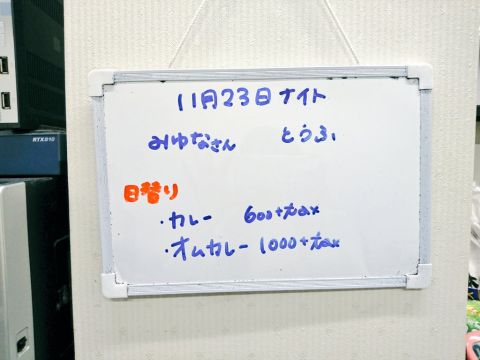 11月23日ナイト
みゆなさん とうふ
日替り
・カレー 600+tax
・オムカレー 1000+tax
RTX810